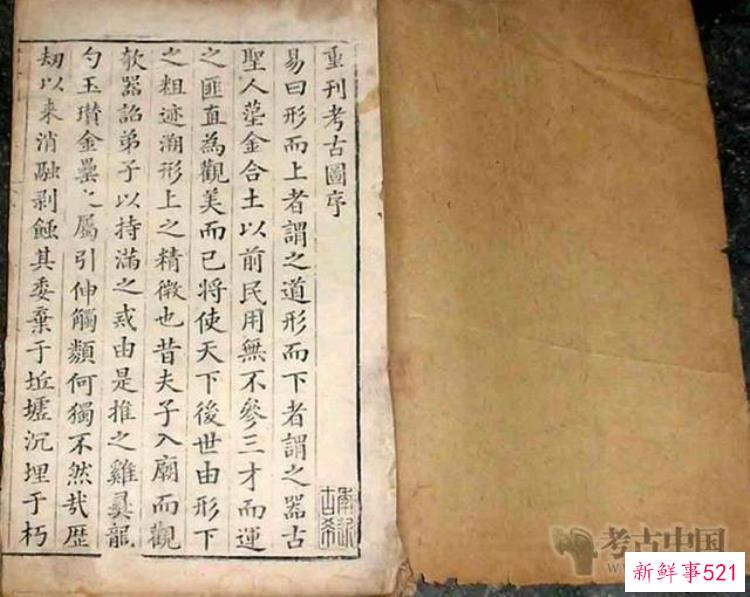 重刊考古圖序
易曰形而上者謂之道形而下者謂之器古
聖人金合土以前民用無不參三才而運
之匪直為觀美而已將使天下後世由形下
之粗迹溯形上之精微也昔夫子入廟而觀
欹器詔弟子以持滿之戒由是推之雞彝龍
勺玉瓚金罍之屬引伸觸類何獨不然哉歷
刼以来消融剥蝕其委棄于坵墟沉埋于朽
考古中国
新鲜事521